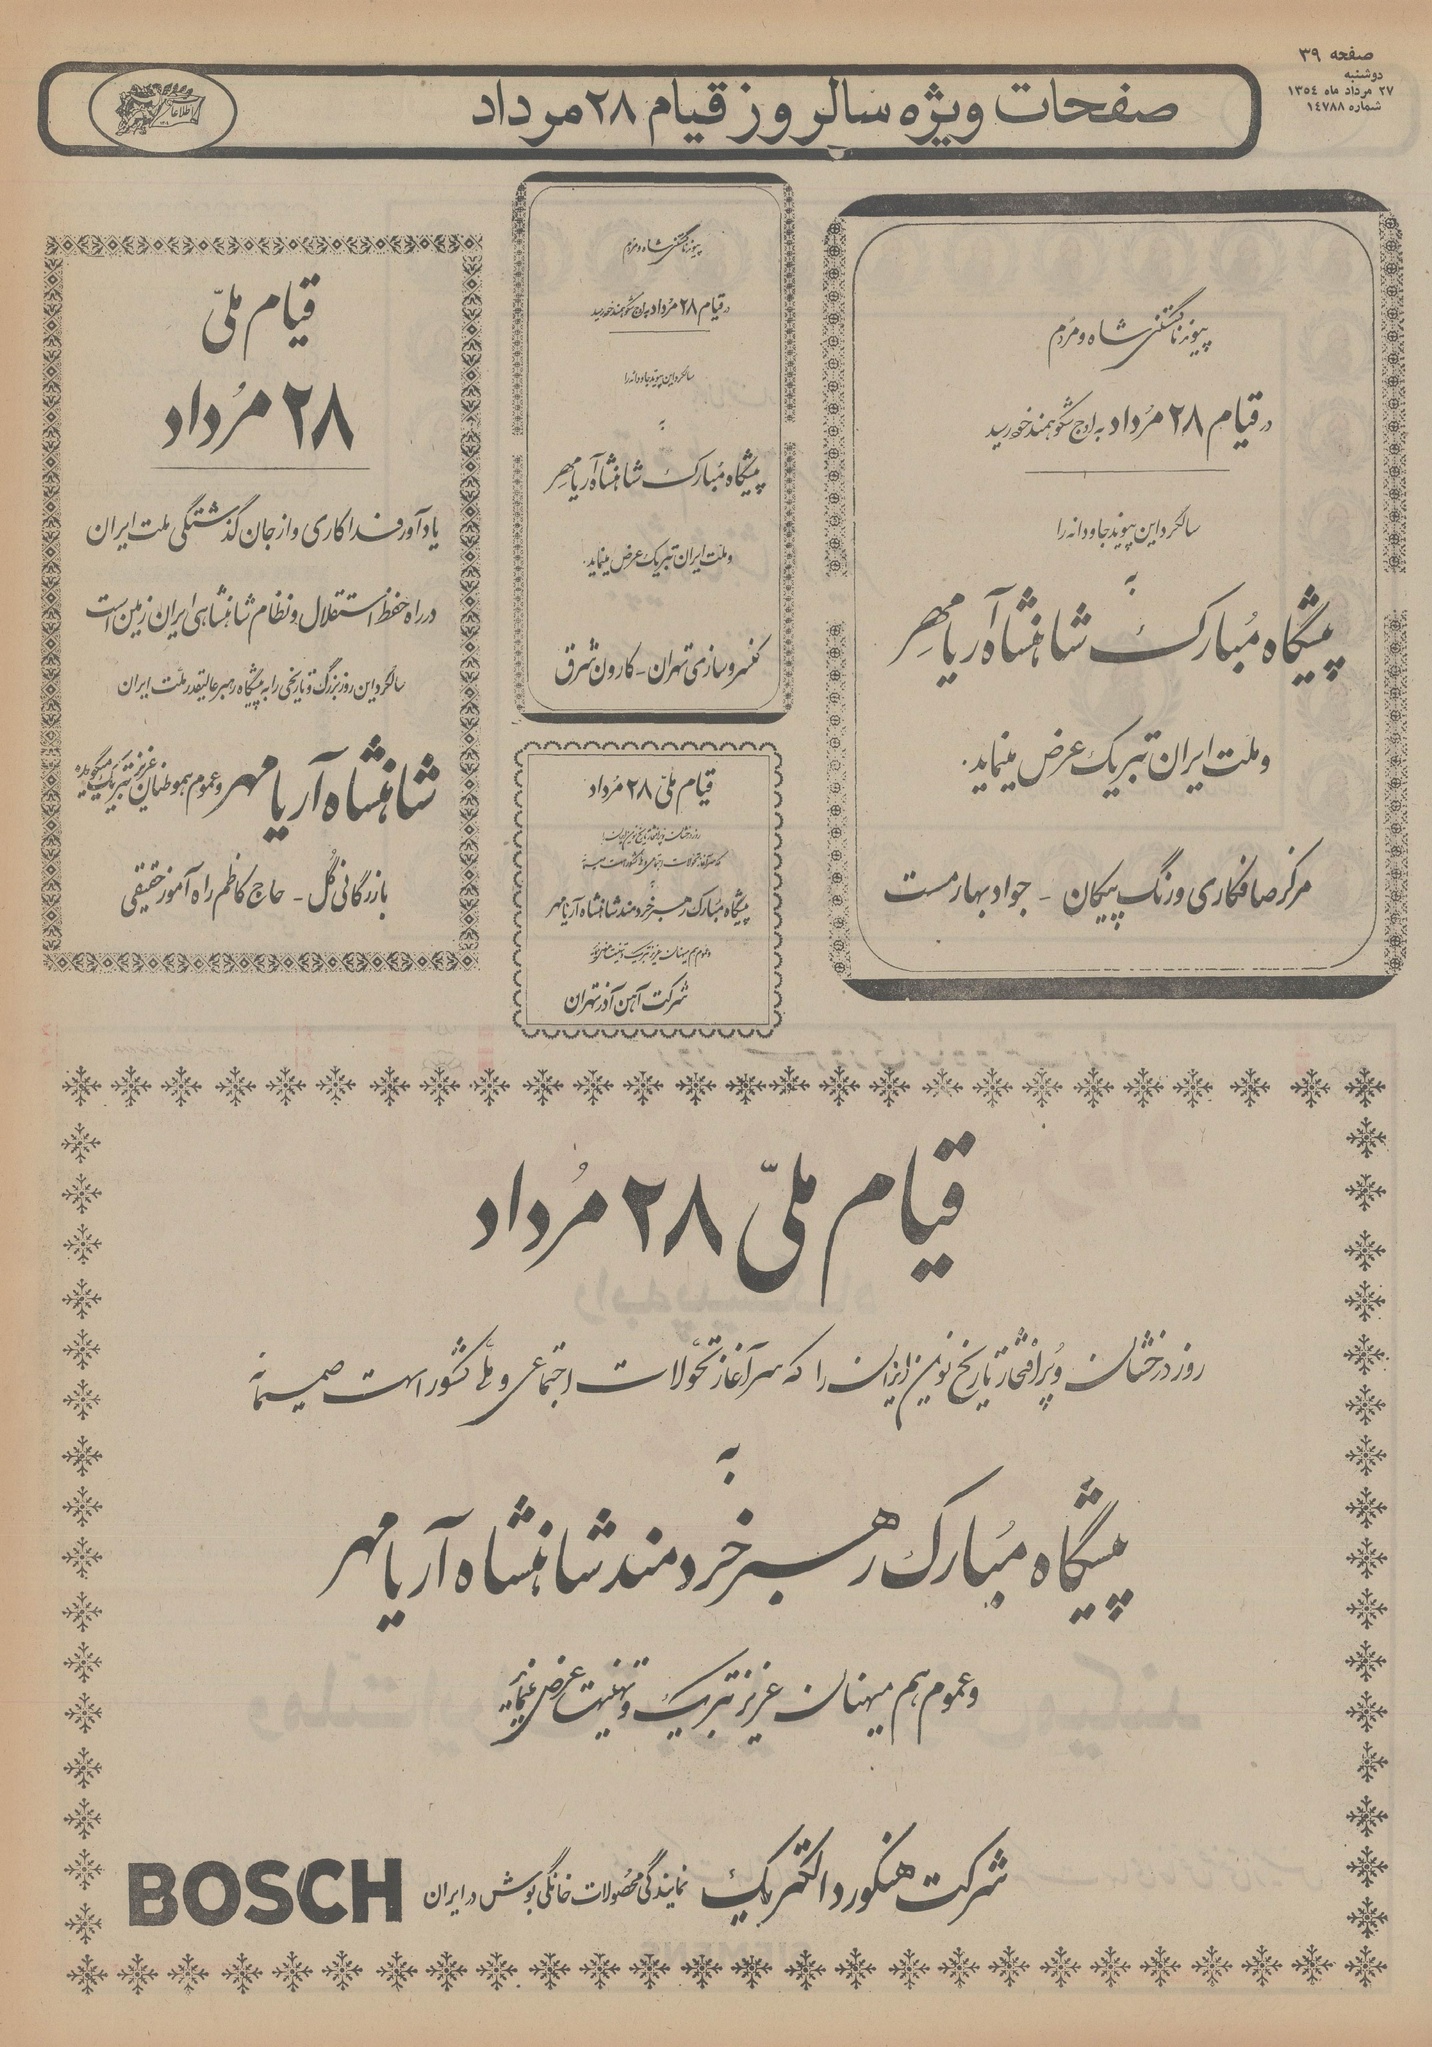 صفحه ۳۹
دوشنبه
۲۷ مرداد ماه ۱۳۵۴
شماره ۱۴۷۸۸
صفحات ویژه سالروز قیام ۲۸ مرداد
اطلاعات
پیوند ناگسستنی شاه و مردم
در قیام ۲۸ مرداد به اوج شکوهمند خود رسید
سالگرد این پیوند جاودانه را
به
پیشگاه مبارک شاهنشاه آریامهر
و ملت ایران تبریک عرض مینماید.
مرکز صافکاری و رنگ پیکان - جواد بهارمست
پیوند ناگسستنی شاه و مردم
در قیام ۲۸ مرداد به اوج شکوهمند خود رسید
سالگرد این پیوند جاودانه را
به
پیشگاه مبارک شاهنشاه آریامهر
و ملت ایران تبریک عرض مینماید.
کنسروسازی تهران - کارون شرق
قیام ملی ۲۸ مرداد
روز درخشان و پرافتخار تاریخ نوین ایران را
که سرآغاز تحولات اجتماعی و ملی کشور است صمیمانه
به
پیشگاه مبارک رهبر خردمند شاهنشاه آریامهر
و عموم هم میهنان عزیز تبریک و تهنیت عرض مینماید
شرکت آهن آذر تهران
قیام ملی
۲۸ مرداد
یادآور فداکاری و از جان گذشتگی ملت ایران
در راه حفظ استقلال و نظام شاهنشاهی ایران زمین است
سالگرد این روز بزرگ و تاریخی را به پیشگاه رهبر عالیقدر ملت ایران
شاهنشاه آریامهر و عموم هموطنان عزیز تبریک میگوید
بازرگانی گل - حاج کاظم راه آموز حقیقی
قیام ملی ۲۸ مرداد
روز درخشان و پرافتخار تاریخ نوین ایران را که سرآغاز تحولات اجتماعی و ملی کشور است صمیمانه
به
پیشگاه مبارک رهبر خردمند شاهنشاه آریامهر
و عموم هم میهنان عزیز تبریک و تهنیت عرض مینماید
شرکت هنکورد الکتریک نمایندگی محصولات خانگی بوش در ایران BOSCH